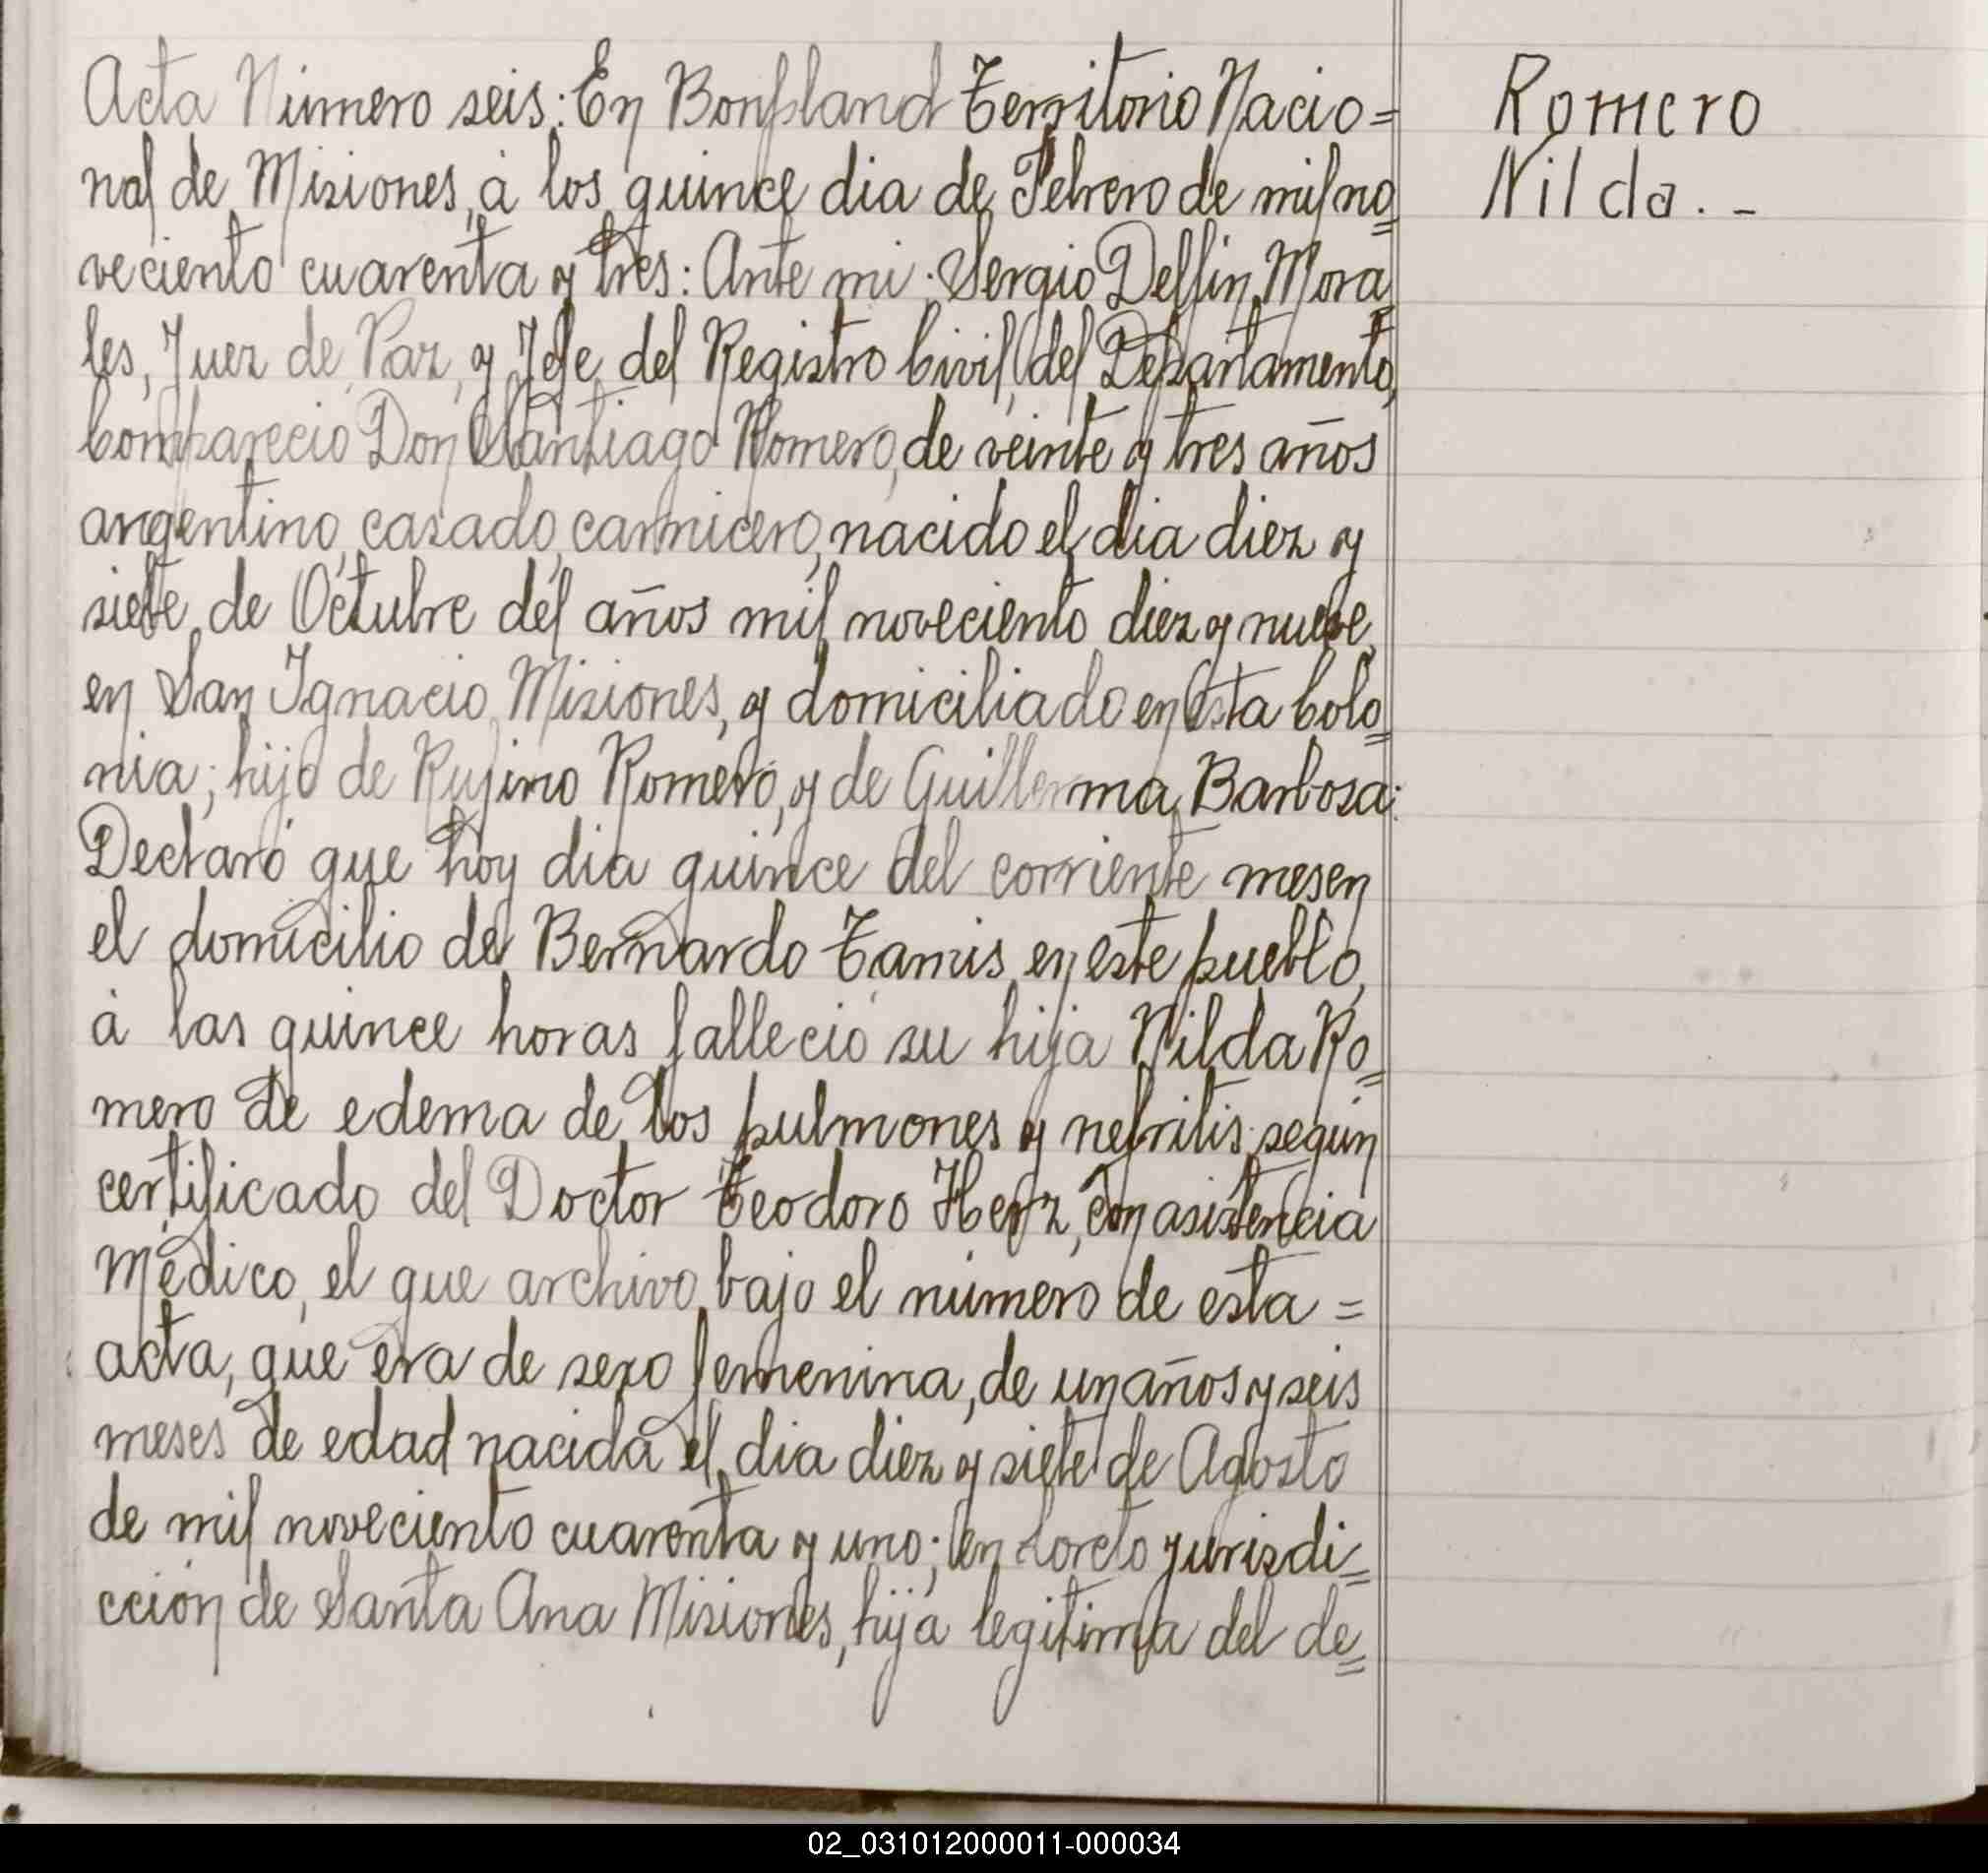 Acta Número seis: En Bonpland Territorio Nacio=
nal de Misiones, à los quince dia de Febrero de mil no=
veciento cuarenta y tres: Ante mi Sergio Delfin Mora
les, Juez de Paz, y Jefe del Registro Civil, del Departamento,
Comparecio Don Santiago Romero, de veinte y tres años
argentino, casado, carnicero, nacido el dia diez y
siete de Octubre del años mil noveciento diez y nueve,
en San Ignacio, Misiones, y domiciliado en esta Colo=
nia; hijo de Rufino Romero, y de Guillerma Barbosa:
Declaró que hoy dia quince del corriente mes en
el domicilio de Bernardo Tamis en este pueblo,
à las quince horas falleció su hija Nilda Ro=
mero de edema de los pulmones y nefritis según
certificado del Doctor Teodoro Herz, con asistencia
Médico, el que archivo bajo el número de esta =
acta, que era de sexo femenina, de un años y seis
meses de edad nacida el dia diez y siete de Agosto
de mil noveciento cuarenta y uno; en Loreto jurisdi=
cción de Santa Ana Misiones, hija legitima del de=
Romero
Nilda. -
02_031012000011-000034